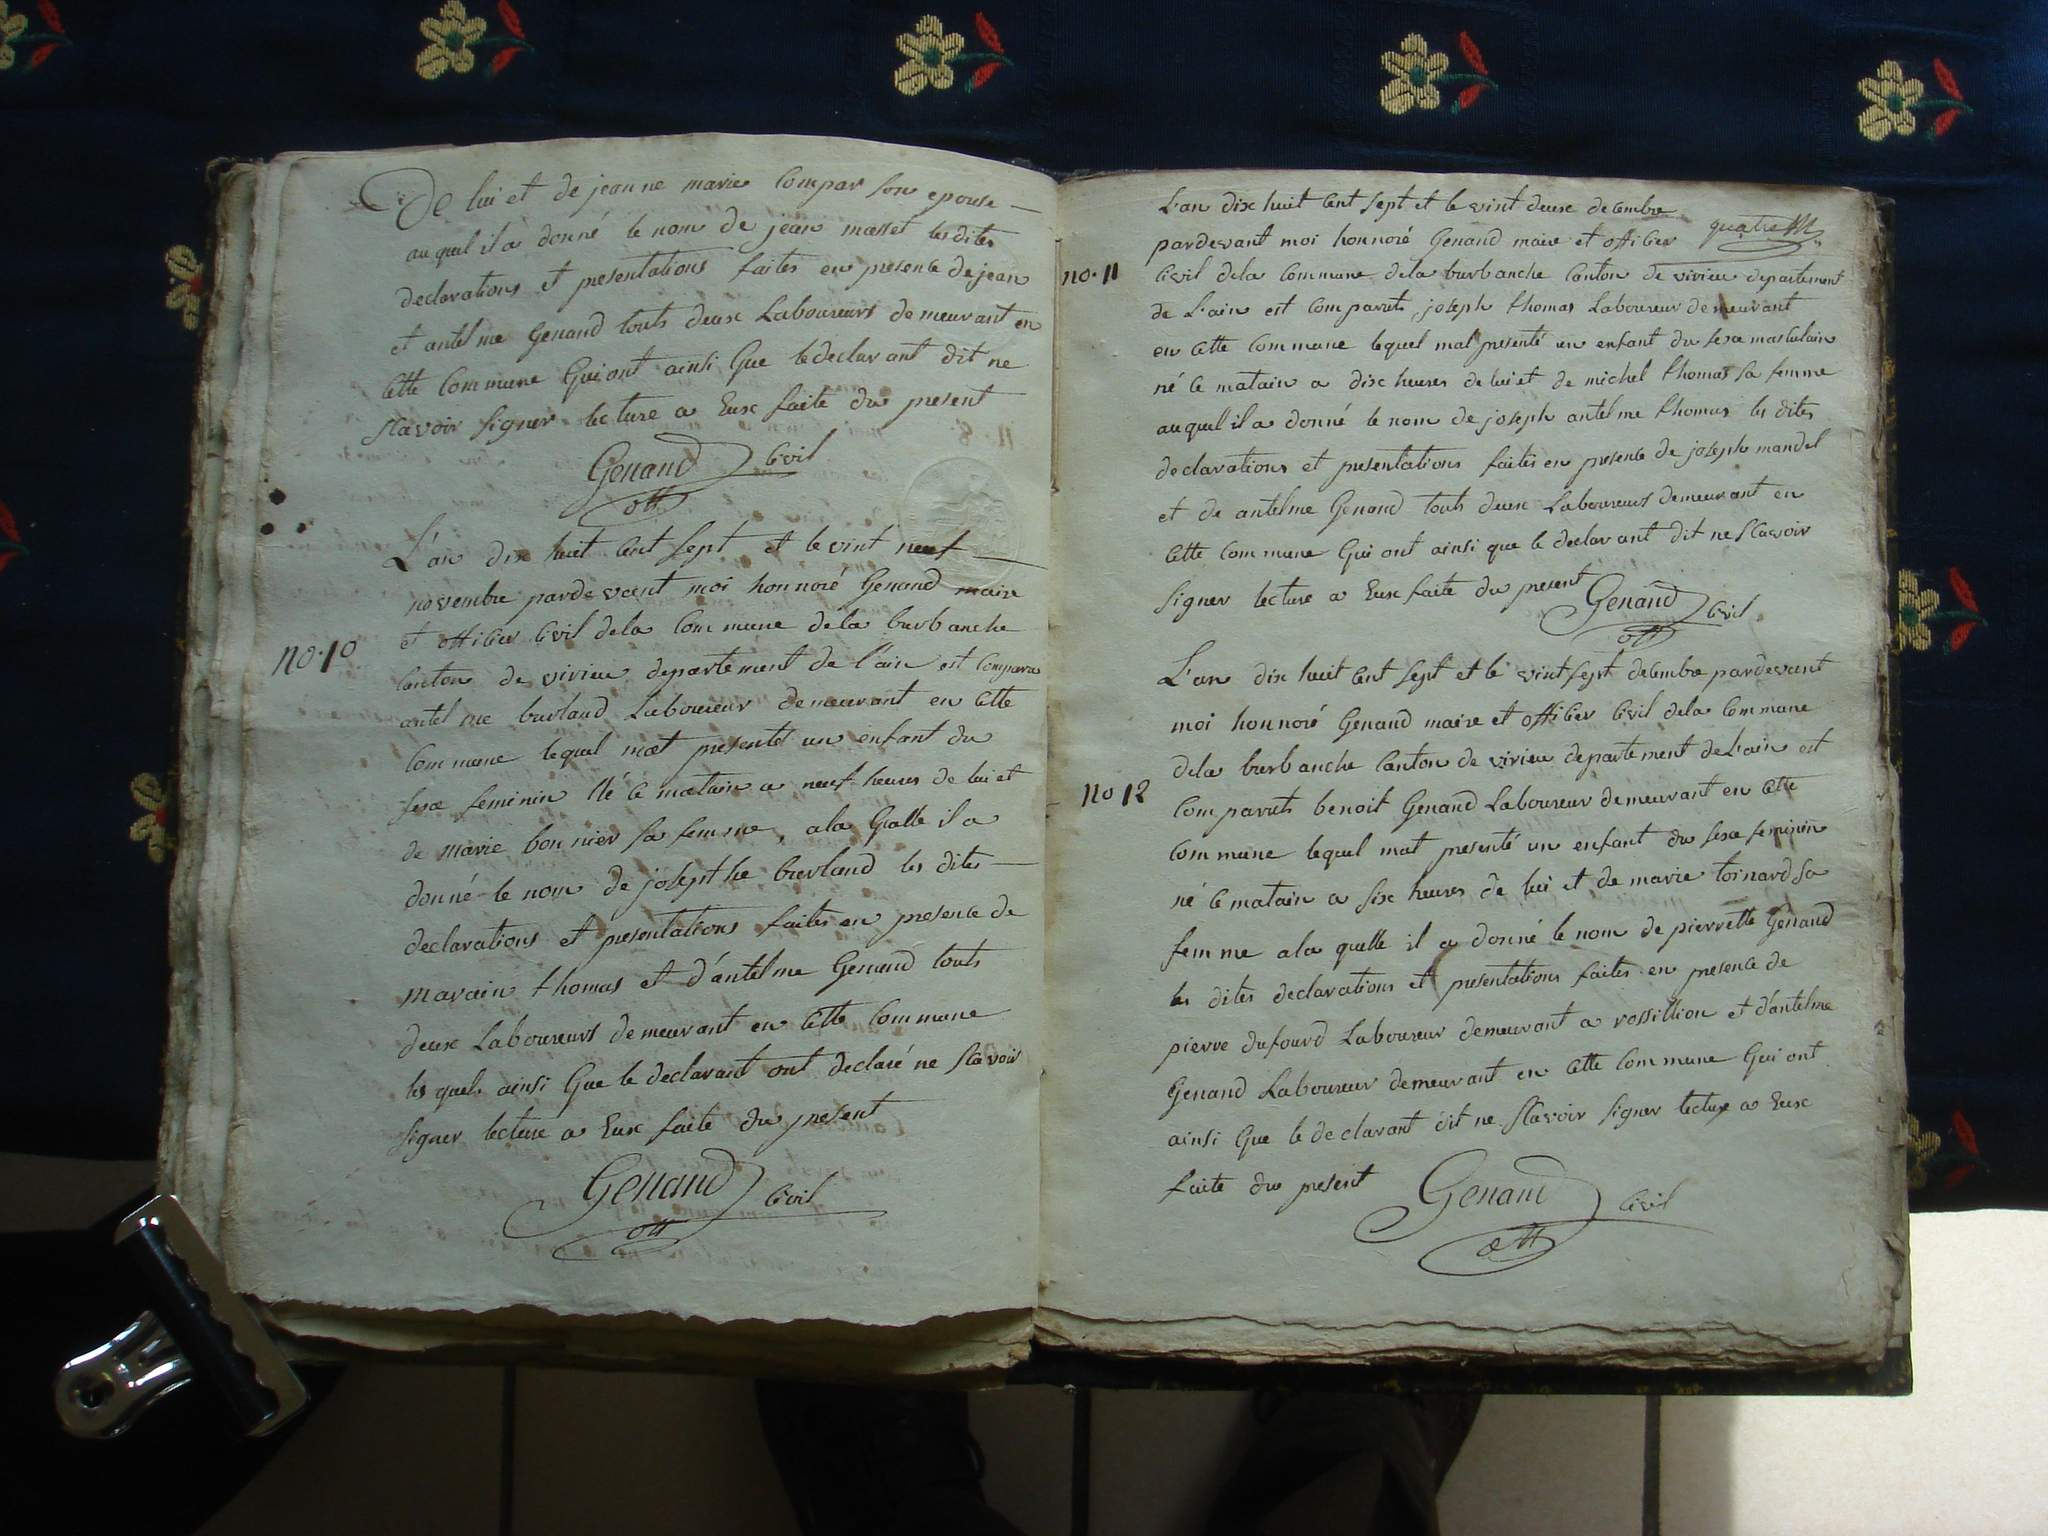 De lui et de jeanne marie Compar son epouse
auquel il a donné le nom de jean masset les dites
declarations et presentations faites en presence de jean
et antelme Genand touts deux Laboureurs demeurant en
cette Commune Qui ont ainsi Que le declarant dit ne
scavoir signer lecture a Eux faite du present
Genand Civil
L'an dix huit cent sept et le vint neuf
novembre pardevant moi honnoré Genand maire
et officier civil dela Commune dela burbanche
no. 10
Canton de virieu departement de l'ain est Comparu
antelme burland Laboureur demeurant en cette
Commune lequel mat presentet un enfant du
sexe feminin Né ce matain a neuf heures de lui et
de marie bonnier sa femme, ala Qualle il a
donné le nom de josepthe burland les dites
declarations et presentations faites en presence de
marain thomas et d'antelme Genand touts
deux Laboureurs demeurant en cette Commune
les quels ainsi Que le declarant ont declaré ne scavoir
signer lecture a Eux faite du present
Genand Civil
L'an dix huit cent sept et le vint deux decembre
quatre
pardevant moi honnoré Genand maire et officier
no. 11
Civil dela Commune dela burbanche Canton de virieu departement
de L'ain est Comparuts joseph thomas Laboureur demeurant
en cette Commune lequel mat presenté un enfant du sexe masculain
né ce matain a dix heures de lui et de michel thomas sa femme
auquel il a donné le nom de joseph antelme thomas les dites
declarations et presentations faites en presence de joseph mandel
et de antelme Genand touts deux Laboureurs demeurant en
cette Commune Qui ont ainsi que le declarant dit ne scavoir
signer lecture a Eux faite du present
Genand Civil
L'an dix huit cent sept et le vint sept decembre pardevant
moi honnoré Genand maire et officier Civil dela Commune
dela burbanche Canton de virieu departement de L'ain est
no 12
Comparuts benoit Genand Laboureur demeurant en cette
Commune lequel mat presenté un enfant du sexe feminin
né ce matain a six heures de lui et de marie toinard sa
femme ala quelle il a donné le nom de pierrette Genand
les dites declarations et presentations faites en presence de
pierre dufourd Laboureur demeurant a rossillion et d'antelme
Genand Laboureur demeurant en cette Commune Qui ont
ainsi Que le declarant dit ne scavoir signer lecture a Eux
faite du present
Genand Civil